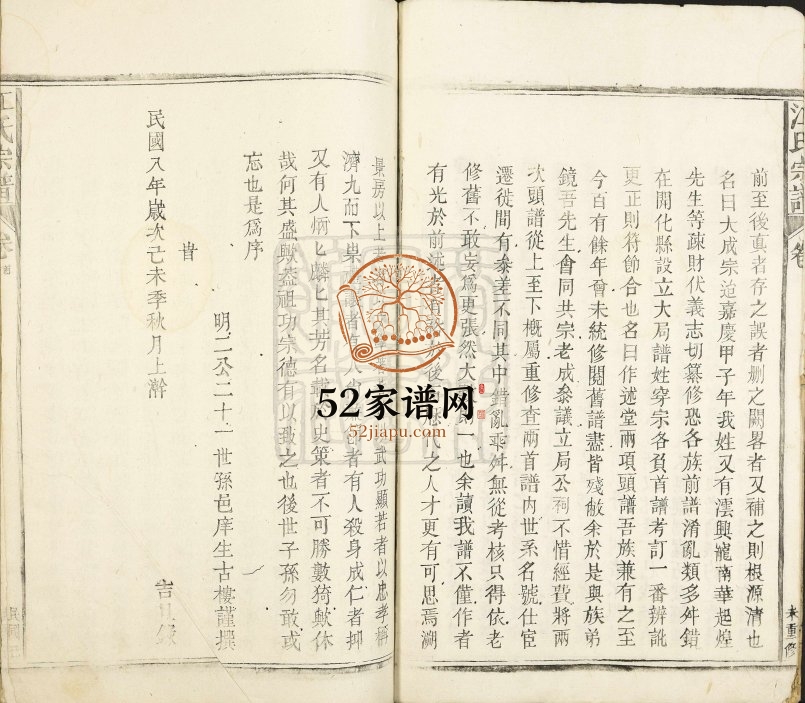 江氏宗譜
卷
未重修
前至後眞者存之誤者刪之闕畧者又補之則根源清也
名曰大成宗迨嘉慶甲子年我姓又有澐興寵南華起煌
先生等疎財伏義志切纂修恐各族前譜淆亂類多舛錯
在開化縣設立大局譜姓穿宗各負首譜考訂一番辨訛
更正則符節合也名曰作述堂兩項頭譜吾族兼有之至
今百有餘年曾未統修閱舊譜盡皆殘敝余於是與族弟
鏡吾先生會同共宗老成叅議立局公祠不惜經費將兩
次頭譜從上至下概屬重修查兩首譜內世系名號仕宦
遷徙間有叅差不同其中錯亂乖舛無從考核只得依老
修舊不敢妄爲更張然大一也余讀我譜不僅作者
有光於前述後歷代之人才更有可思焉溯
景房以上武功顯若者以忠孝稱
濟九而下者有人者有人殺身成仁者抑
又有人炳匕麟匕其芳名載史策者不可勝數猗歟休
哉何其盛歟蓋祖功宗德有以致之也後世子孫勿敢或
忘也是爲序
旹
民國八年歲次己未季秋月上澣
明二公二十一世孫邑庠生古樓謹撰
江氏宗譜
卷
52家谱网
52jiapu.com